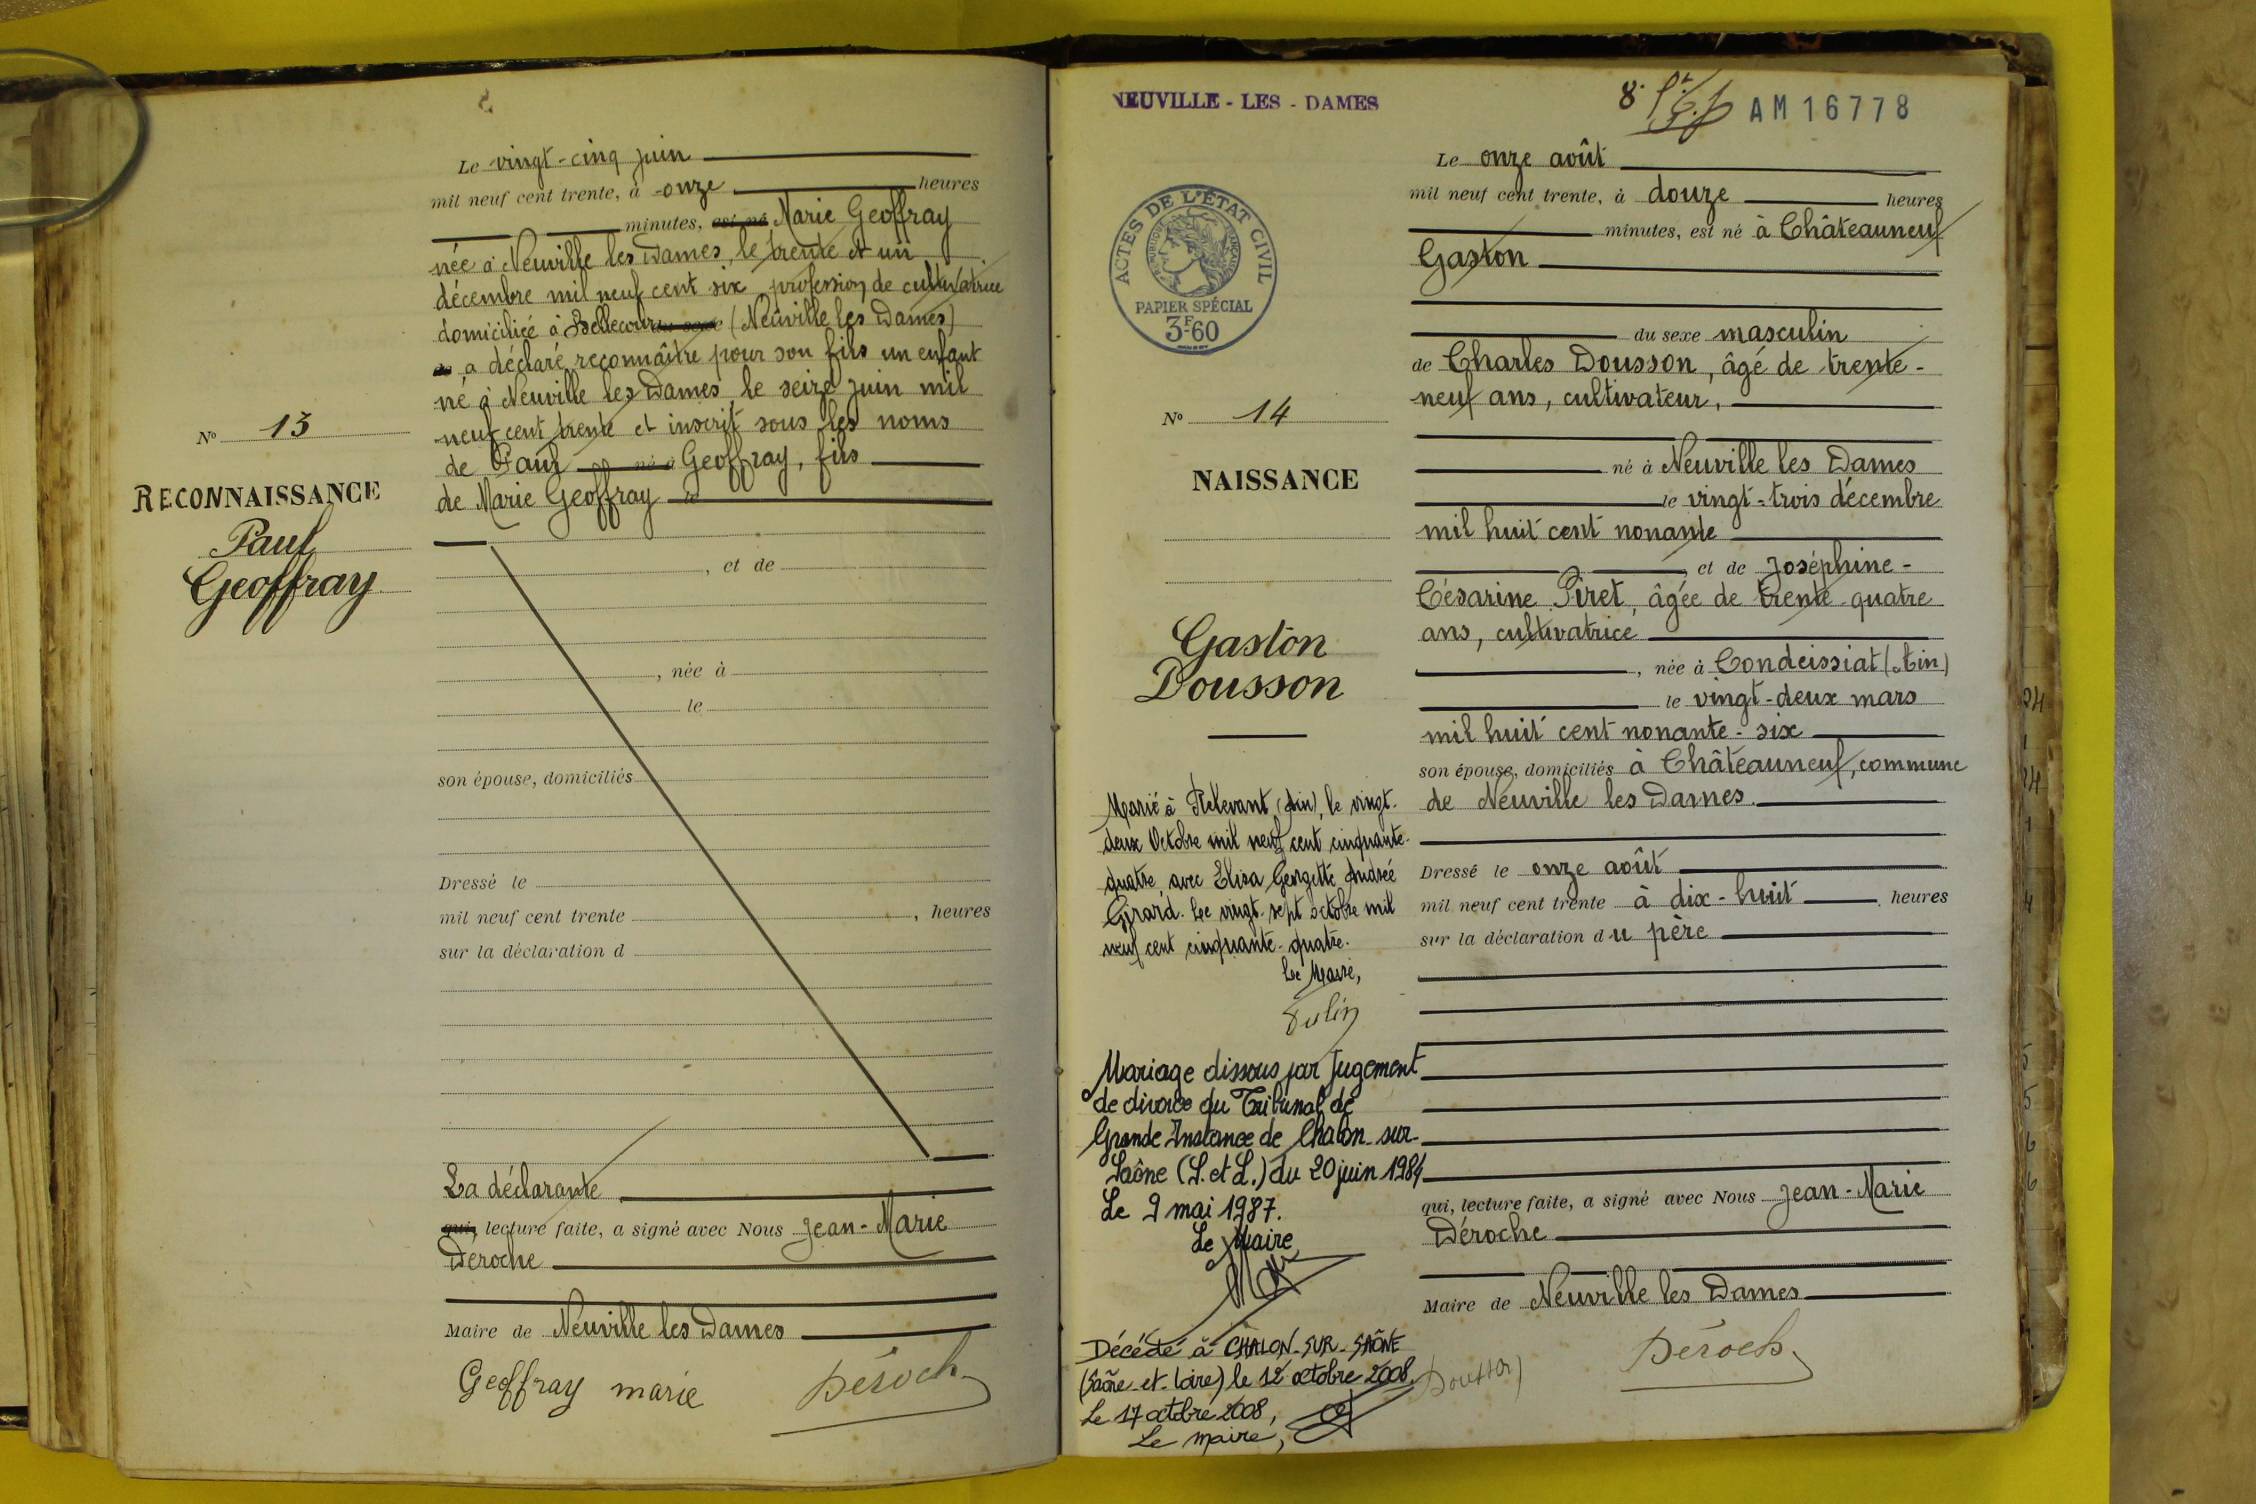 Le vingt-cinq juin
mil neuf cent trente, à onze heures
minutes, est né Marie Geoffray
née à Neuville les Dames, le trente et un
décembre mil neuf cent six, profession de cultivatrice
domiciliée à Bellecour du sexe (Neuville les Dames)
de a déclaré reconnaître pour son fils un enfant
né à Neuville les Dames le seize juin mil
neuf cent trente et inscrit sous les noms
de Paul né à Geoffray, fils
de Marie Geoffray le
, et de
, née à
le
son épouse, domiciliés
Dressé le
mil neuf cent trente , heures
sur la déclaration d
La déclarante
qui, lecture faite, a signé avec Nous Jean-Marie
Déroche
Maire de Neuville les Dames
Geoffray marie Déroch
No 13
RECONNAISSANCE
Paul
Geoffray
NEUVILLE - LES - DAMES
8. AM 16778
ACTES DE L'ÉTAT CIVIL
RÉPUBLIQUE FRANÇAISE
PAPIER SPÉCIAL
3F60
No 14
NAISSANCE
Gaston
Dousson
Marié à Relevant (Ain), le vingt-
deux Octobre mil neuf cent cinquante-
quatre avec Elisa Georgette Andrée
Girard. Le vingt-sept octobre mil
neuf cent cinquante-quatre.
Le Maire,
Mariage dissous par Jugement
de divorce du Tribunal de
Grande Instance de Chalon-sur-
Saône (S. et L.) du 20 juin 1984
Le 9 mai 1987.
Le Maire
Décédé à CHALON-SUR-SAÔNE
(Saône-et-Loire) le 12 octobre 2008.
Le 17 octobre 2008,
Le maire,
Le onze août
mil neuf cent trente, à douze heures
minutes, est né à Châteauneuf
Gaston
du sexe masculin
de Charles Dousson, âgé de trente-
neuf ans, cultivateur,
né à Neuville les Dames
le vingt-trois décembre
mil huit cent nonante
, et de Joséphine-
Césarine Piret, âgée de trente-quatre
ans, cultivatrice
, née à Condeissiat (Ain)
le vingt-deux mars
mil huit cent nonante-six
son épouse, domiciliés à Châteauneuf, commune
de Neuville les Dames
Dressé le onze août
mil neuf cent trente à dix-huit heures
sur la déclaration du père
qui, lecture faite, a signé avec Nous Jean-Marie
Déroche
Maire de Neuville les Dames
Dousson Déroch